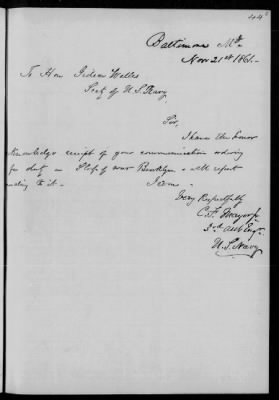 104
Baltimore Md
Nov 21st 1861.
To Hon Gideon Welles
Secty of U.S. Navy
Sir,
I have the honor
acknowledge receipt of your communication ordering
for duty on Ship of war Brooklyn
to it.
I am
Very Respectfully
3rd Asst Engr
U.S. Navy